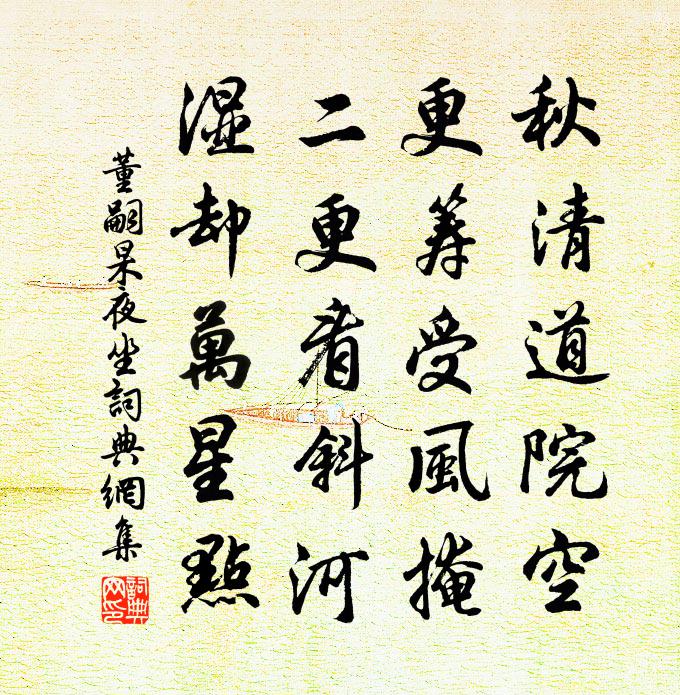 秋清道院空
更筹受風掩
二更看斜河
濕却萬星點
董嗣杲夜坐詞典網集
詞典网印